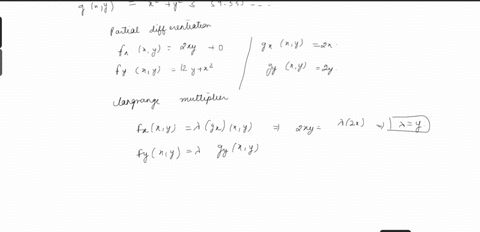 g(x,y) = x² + y² ≤
Partial differentiation
fx (x,y) = 2xy → 0 / gx (x,y) = 2x.
fy (x,y) = 12y + x² / gy (x,y) = 2y.
Langrange multiplier
fx (x,y) = λ (gx) (x,y) ⇒ 2xy = λ(2x) → λ = y
fy (x,y) = λ gy (x,y)